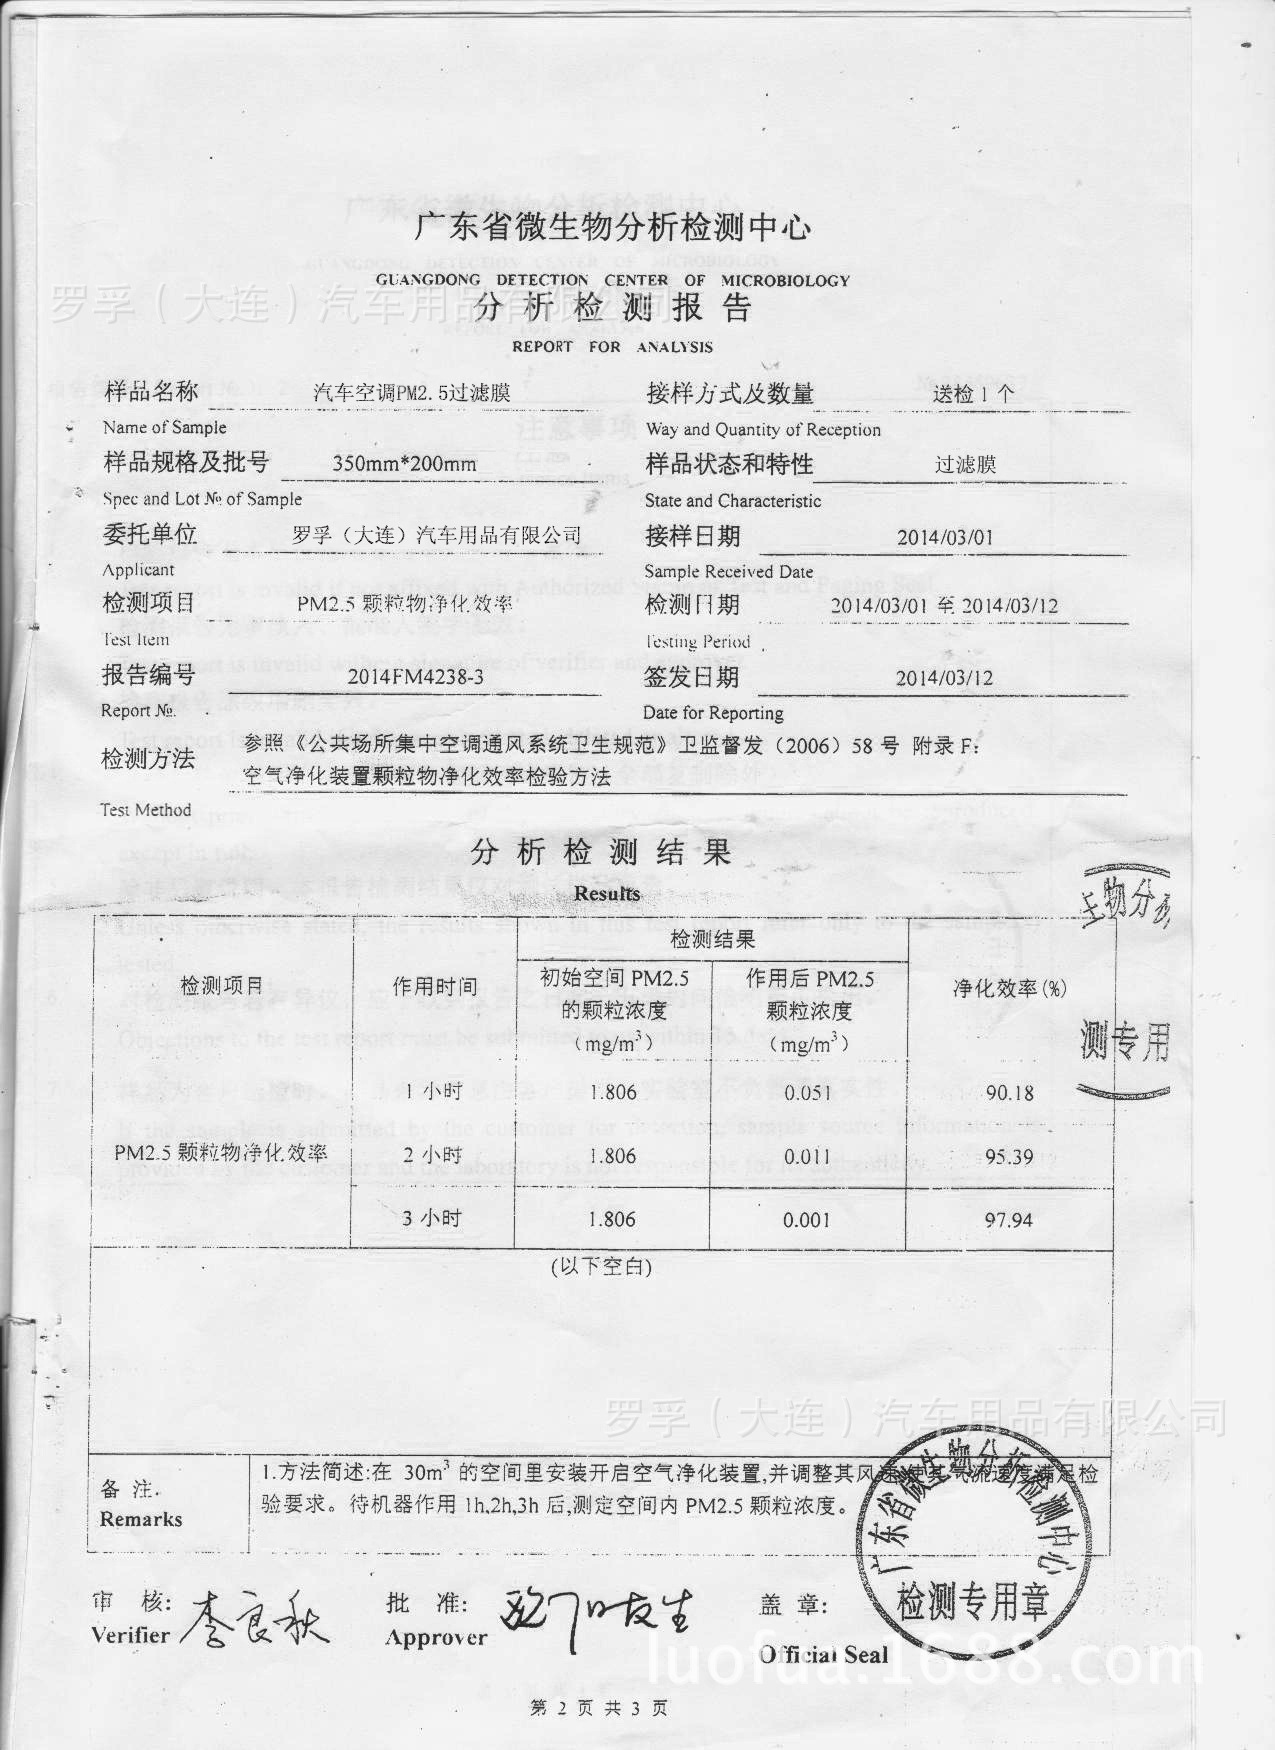 广东省微生物分析检测中心
GUANGDONG DETECTION CENTER OF MICROBIOLOGY
罗孚（大连）汽车用品有限公司
分析检测报告
REPORT FOR ANALYSIS
样品名称 汽车空调PM2.5过滤膜 接样方式及数量 送检 1 个
Name of Sample Way and Quantity of Reception
样品规格及批号 350mm*200mm 样品状态和特性 过滤膜
Spec and Lot № of Sample State and Characteristic
委托单位 罗孚（大连）汽车用品有限公司 接样日期 2014/03/01
Applicant Sample Received Date
检测项目 PM2.5 颗粒物净化效率 检测日期 2014/03/01 至 2014/03/12
Test Item Testing Period
报告编号 2014FM4238-3 签发日期 2014/03/12
Report №. Date for Reporting
检测方法 参照《公共场所集中空调通风系统卫生规范》卫监督发（2006）58 号 附录 F:
空气净化装置颗粒物净化效率检验方法
Test Method
分析检测结果
Results
生物分
检测项目 作用时间 检测结果 净化效率(%)
初始空间 PM2.5 的颗粒浓度 (mg/m³) 作用后 PM2.5 颗粒浓度 (mg/m³)
测专用
PM2.5 颗粒物净化效率
1 小时 1.806 0.051 90.18
2 小时 1.806 0.011 95.39
3 小时 1.806 0.001 97.94
(以下空白)
罗孚（大连）汽车用品有限公司
备 注. 1.方法简述:在 30m³ 的空间里安装开启空气净化装置,并调整其风速,使其气流速度满足检
Remarks 验要求。待机器作用 1h,2h,3h 后,测定空间内 PM2.5 颗粒浓度。
广东省微生物分析检测中心
检测专用章
审 核: 李良秋 批 准: 盖 章:
Verifier Approver Official Seal
luofua.1688.com
第 2 页 共 3 页